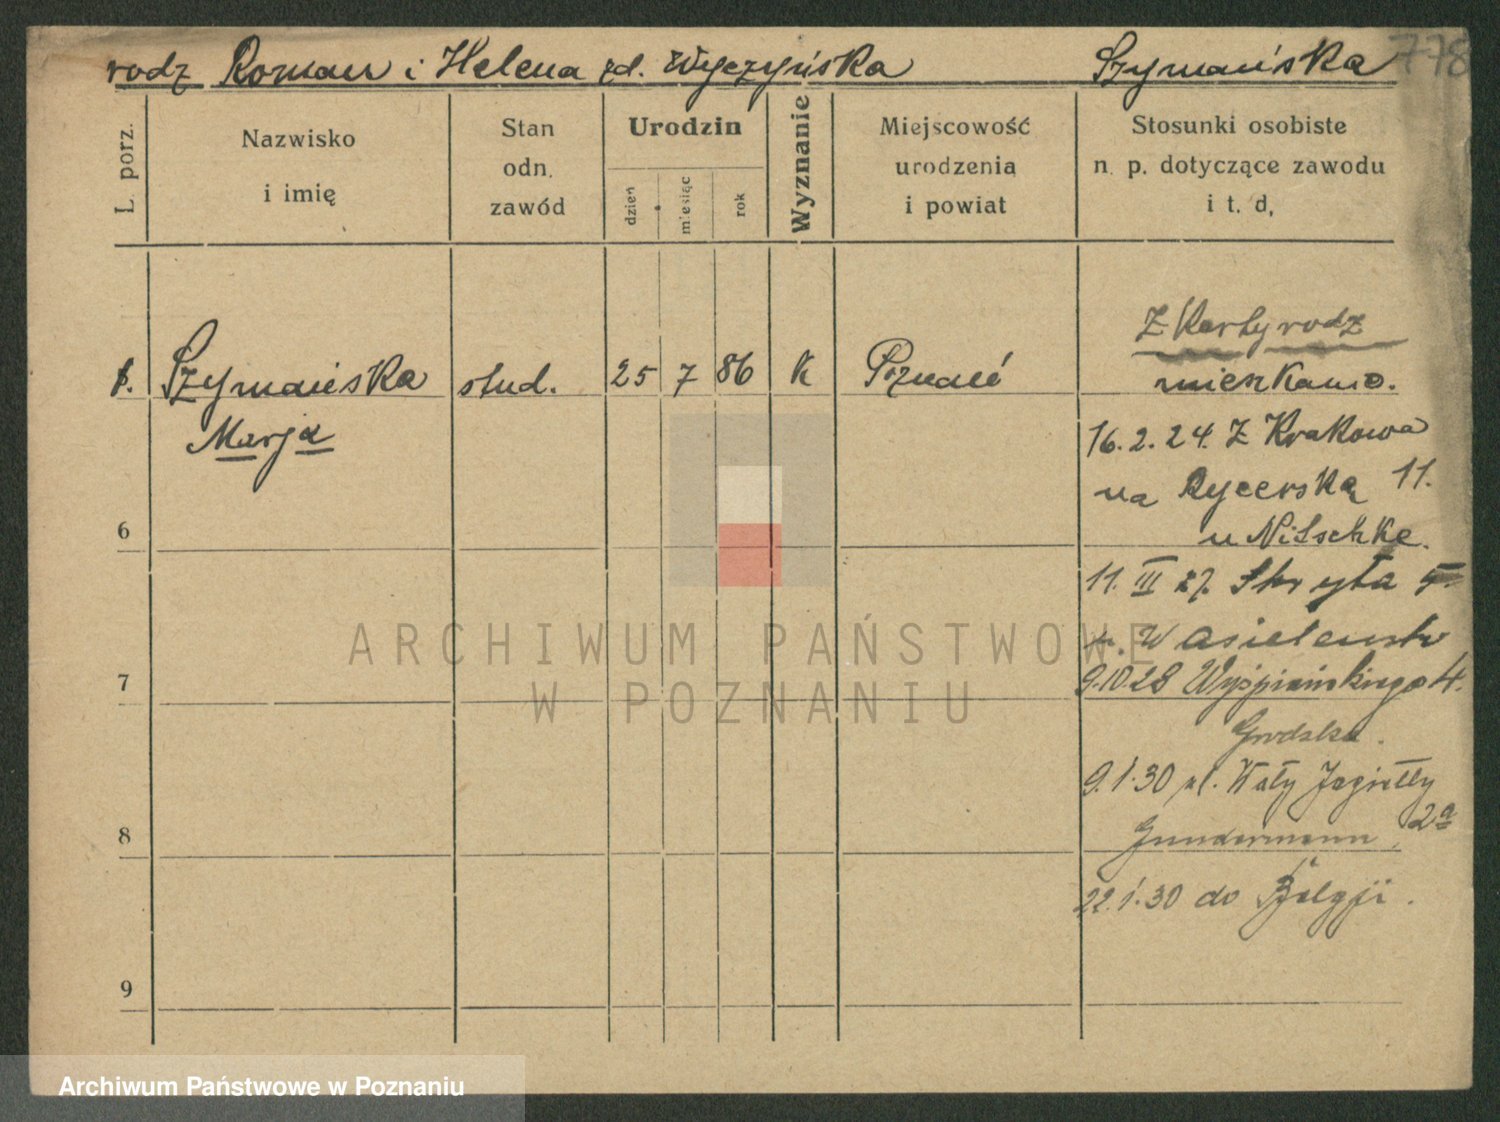 rodz Roman i Helena zd. Wyczyńska Szymańska 778
L. porz.
Nazwisko
i imię
Stan
odn.
zawód
Urodzin
dzień
miesiąc
rok
Wyznanie
Miejscowość
urodzenia
i powiat
Stosunki osobiste
n. p. dotyczące zawodu
i t. d,
Z Karty rodz
mieszkanio.
Szymańska stud. 25 7 86 K Poznań
Marja
16. 2. 24. Z Krakowa
na Rycerską 11.
u Nitschke.
6
11. III 27. Skryta
7
9.10.28 Wyspiańskiego 4.
Grodzka.
9.1.30 ul. Wały Jagiełły
2a
Gundermann
8
22.1.30 do Belgji.
9
ARCHIWUM PAŃSTWOWE
W POZNANIU
Archiwum Państwowe w Poznaniu